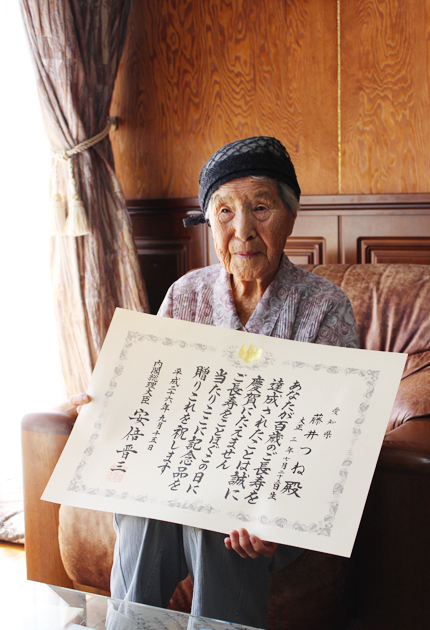 愛知県
藤井つね殿
大正 年十月 日生
あなたが百歳のご長寿を
達成されたことは誠に
慶賀にたえません
ご長寿をことほぐこの日に
当たりここに記念品を
贈りこれを祝します
平成二十六年九月十五日
内閣総理大臣 安倍晋三